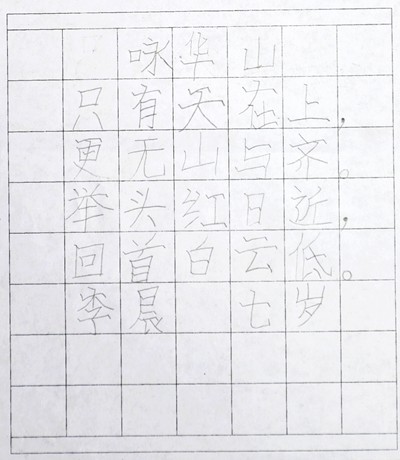 咏华山
只有天在上，
更无山与齐。
举头红日近，
回首白云低。
李晨 七岁